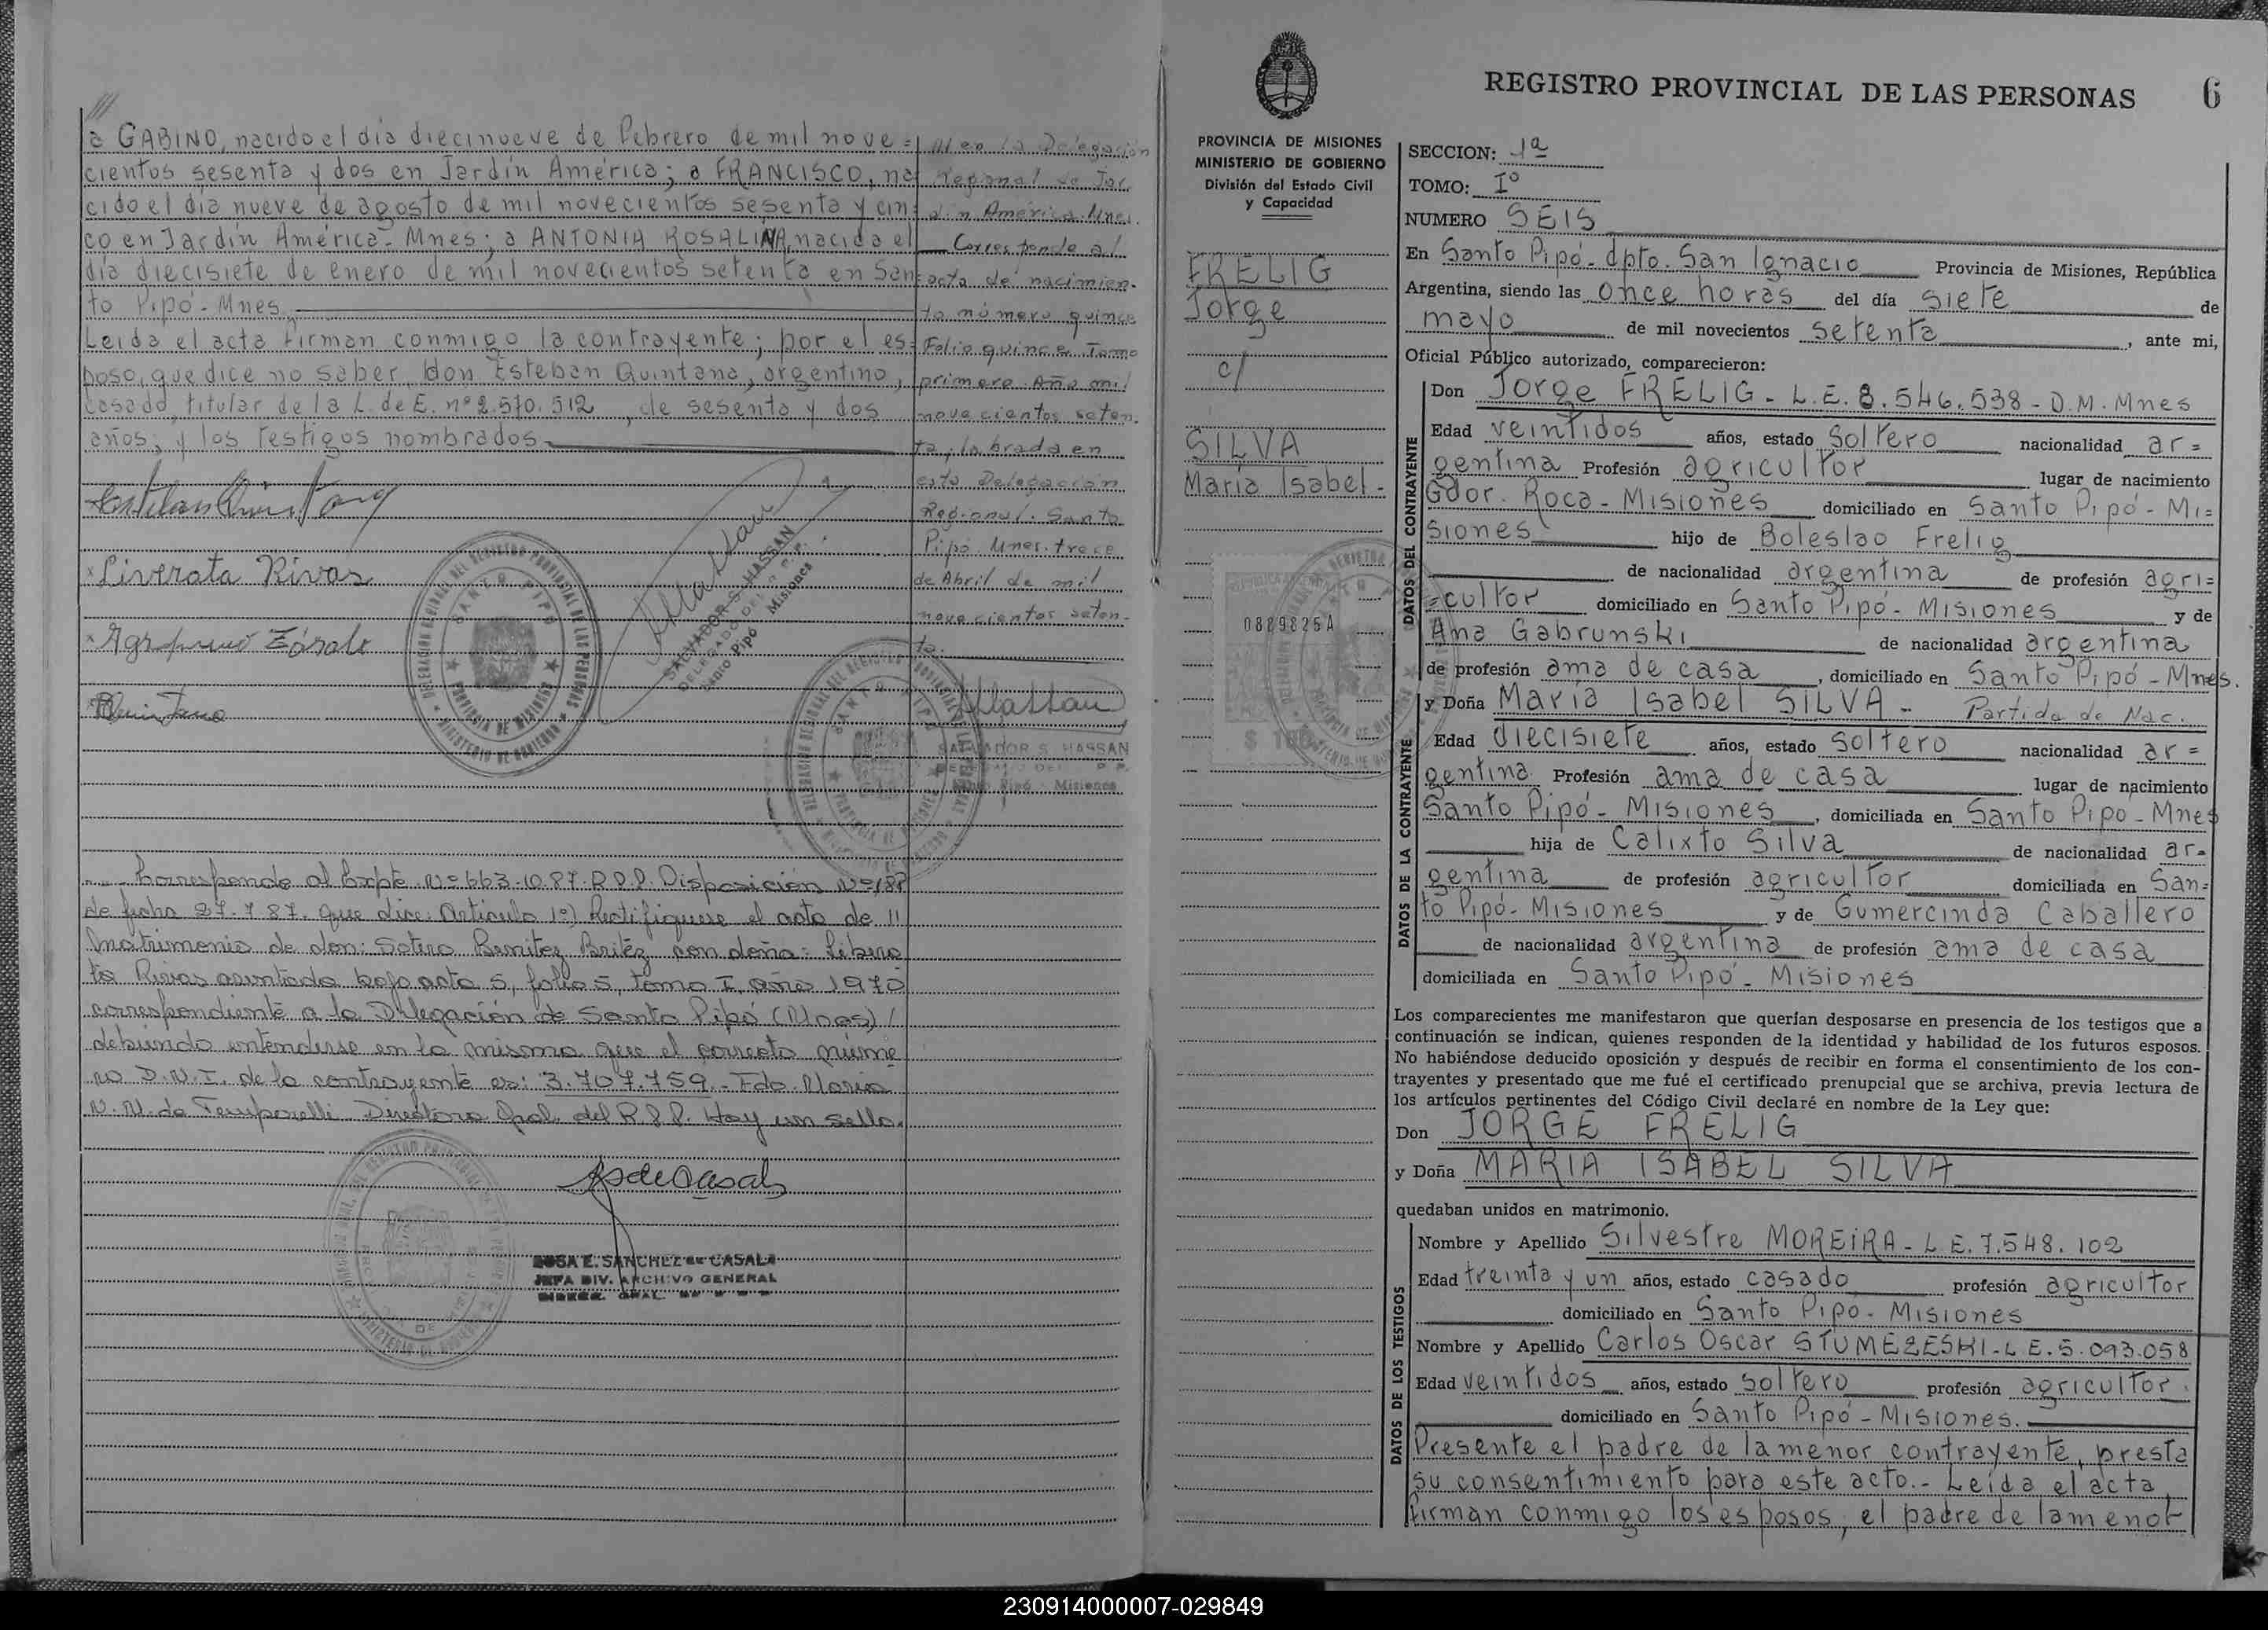 a GABINO, nacido el día diecinueve de Febrero de mil nove=
cientos sesenta y dos en Jardín América; a FRANCISCO, na=
cido el día nueve de agosto de mil novecientos sesenta y cin=
co en Jardín América- Mnes; a ANTONIA ROSALINA, nacida el
día diecisiete de enero de mil novecientos setenta en San=
to Pipó- Mnes.
Leída el acta firman conmigo la contrayente; por el es=
poso, que dice no saber, don Esteban Quintana, argentino,
casado, titular de la L. de E. nº 2.570.512, de sesenta y dos
años; y los testigos nombrados-
al en la Delegación
Regional de Jar
din América. Mnes.
Corresponde al
acta de nacimien-
to número quince
Folio quince Tomo
primero Año mil
novecientos seten-
ta, labrada en
esta Delegación
Regional. Santo
Pipó. Mnes. trece
de Abril de mil
novecientos seten-
ta.
Liverata Rivas
Quintana
SALVADOR S. HASSAN
DELEGADO DEL R. P. P.
Santo Pipó Misiones
DELEGACION REGIONAL DEL REGISTRO PROVINCIAL DE LAS PERSONAS
SANTO PIPO
PROVINCIA DE MISIONES
MINISTERIO DE GOBIERNO
SALVADOR S. HASSAN
Santo Pipó - Misiones
Corresponde al Expte. Nº 663-10.87-R.P.P. Disposición Nº 187
de fecha 27.7.87. que dice: Artículo 1º) Rectifiquese el acta de //
matrimonio de don: Sotero Benitez Britéz con doña: Libera
ta Rivas asentada bajo acta 5, folio 5, tomo I, año 1970
correspondiente a la Delegación de Santo Pipó (Mnes) /
debiendo entenderse en la misma que el correcto núme
ro D.N.I. de la contrayente es: 3.707.759.- Fdo. Maria
N. N. de Temporelli Directora Gral. del R.P.P. Hay un sello.
ROSA E. SANCHEZ de CASALA
JEFA DIV. ARCHIVO GENERAL
REGISTRO PROVINCIAL DE LAS PERSONAS
6
PROVINCIA DE MISIONES
MINISTERIO DE GOBIERNO
División del Estado Civil
y Capacidad
FRELIG
Jorge
c/
SILVA
María Isabel-
0889825A
SECCION: 1ª
TOMO: Iº
NUMERO SEIS
En Santo Pipó- dpto. San Ignacio Provincia de Misiones, República
Argentina, siendo las once horas del día siete de
mayo de mil novecientos setenta, ante mi,
Oficial Público autorizado, comparecieron:
DATOS DEL CONTRAYENTE
Don Jorge FRELIG- L.E. 8.546.538- D.M. Mnes
Edad veintidos años, estado soltero nacionalidad ar=
gentina Profesión agricultor lugar de nacimiento
Gdor. Roca- Misiones domiciliado en Santo Pipó- Mi=
siones hijo de Boleslao Frelig
de nacionalidad argentina de profesión agri=
=cultor domiciliado en Santo Pipó- Misiones y de
Ana Gabrunski de nacionalidad argentina
de profesión ama de casa, domiciliado en Santo Pipó- Mnes.
DATOS DE LA CONTRAYENTE
y Doña María Isabel SILVA- Partida de Nac.
Edad diecisiete años, estado soltero nacionalidad ar=
gentina Profesión ama de casa lugar de nacimiento
Santo Pipó- Misiones, domiciliada en Santo Pipo- Mnes
hija de Calixto Silva de nacionalidad ar=
gentina de profesión agricultor domiciliada en San=
to Pipó- Misiones y de Gumercinda Caballero
de nacionalidad argentina de profesión ama de casa
domiciliada en Santo Pipó- Misiones
Los comparecientes me manifestaron que querían desposarse en presencia de los testigos que a
continuación se indican, quienes responden de la identidad y habilidad de los futuros esposos.
No habiéndose deducido oposición y después de recibir en forma el consentimiento de los con-
trayentes y presentado que me fué el certificado prenupcial que se archiva, previa lectura de
los artículos pertinentes del Código Civil declaré en nombre de la Ley que:
Don JORGE FRELIG
y Doña MARIA ISABEL SILVA
quedaban unidos en matrimonio.
DATOS DE LOS TESTIGOS
Nombre y Apellido Silvestre MOREIRA- L.E. 7.548.102
Edad treinta y un años, estado casado profesión agricultor
domiciliado en Santo Pipo- Misiones
Nombre y Apellido Carlos Oscar STUMEZESKI- L.E. 5.093.058
Edad veintidos años, estado soltero profesión agricultor.
domiciliado en Santo Pipó- Misiones.
Presente el padre de la menor contrayente, presta
su consentimiento para este acto.- Leída el acta,
firman conmigo los esposos, el padre de la menor
230914000007-029849